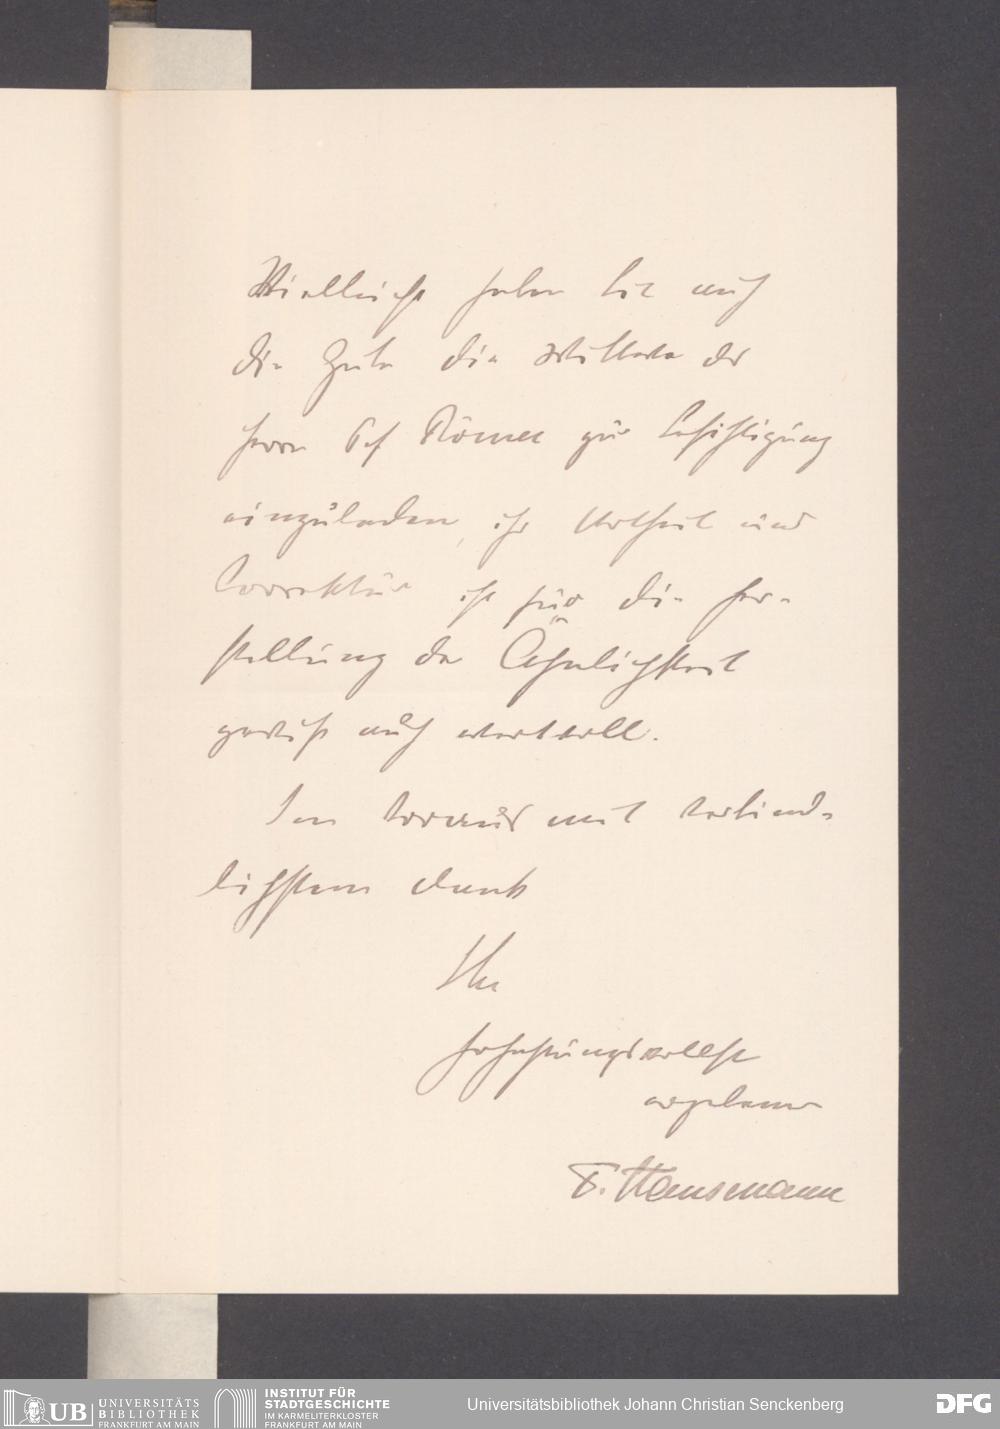 Vielleicht haben Sie auch
die Güte die Wittwe des
Herrn Prof Römer zur Besichtigung
einzuladen, ihr Urtheil und
Correktur ist für die Her-
stellung der Ähnlichkeit
gewiß auch wertvoll.
Im voraus mit verbind-
lichstem Dank
Ihr
hochachtungsvollst
ergebener
F. Hausmann
UB UNIVERSITÄTS
BIBLIOTHEK
FRANKFURT AM MAIN
INSTITUT FÜR
STADTGESCHICHTE
IM KARMELITERKLOSTER
FRANKFURT AM MAIN
Universitätsbibliothek Johann Christian Senckenberg
DFG